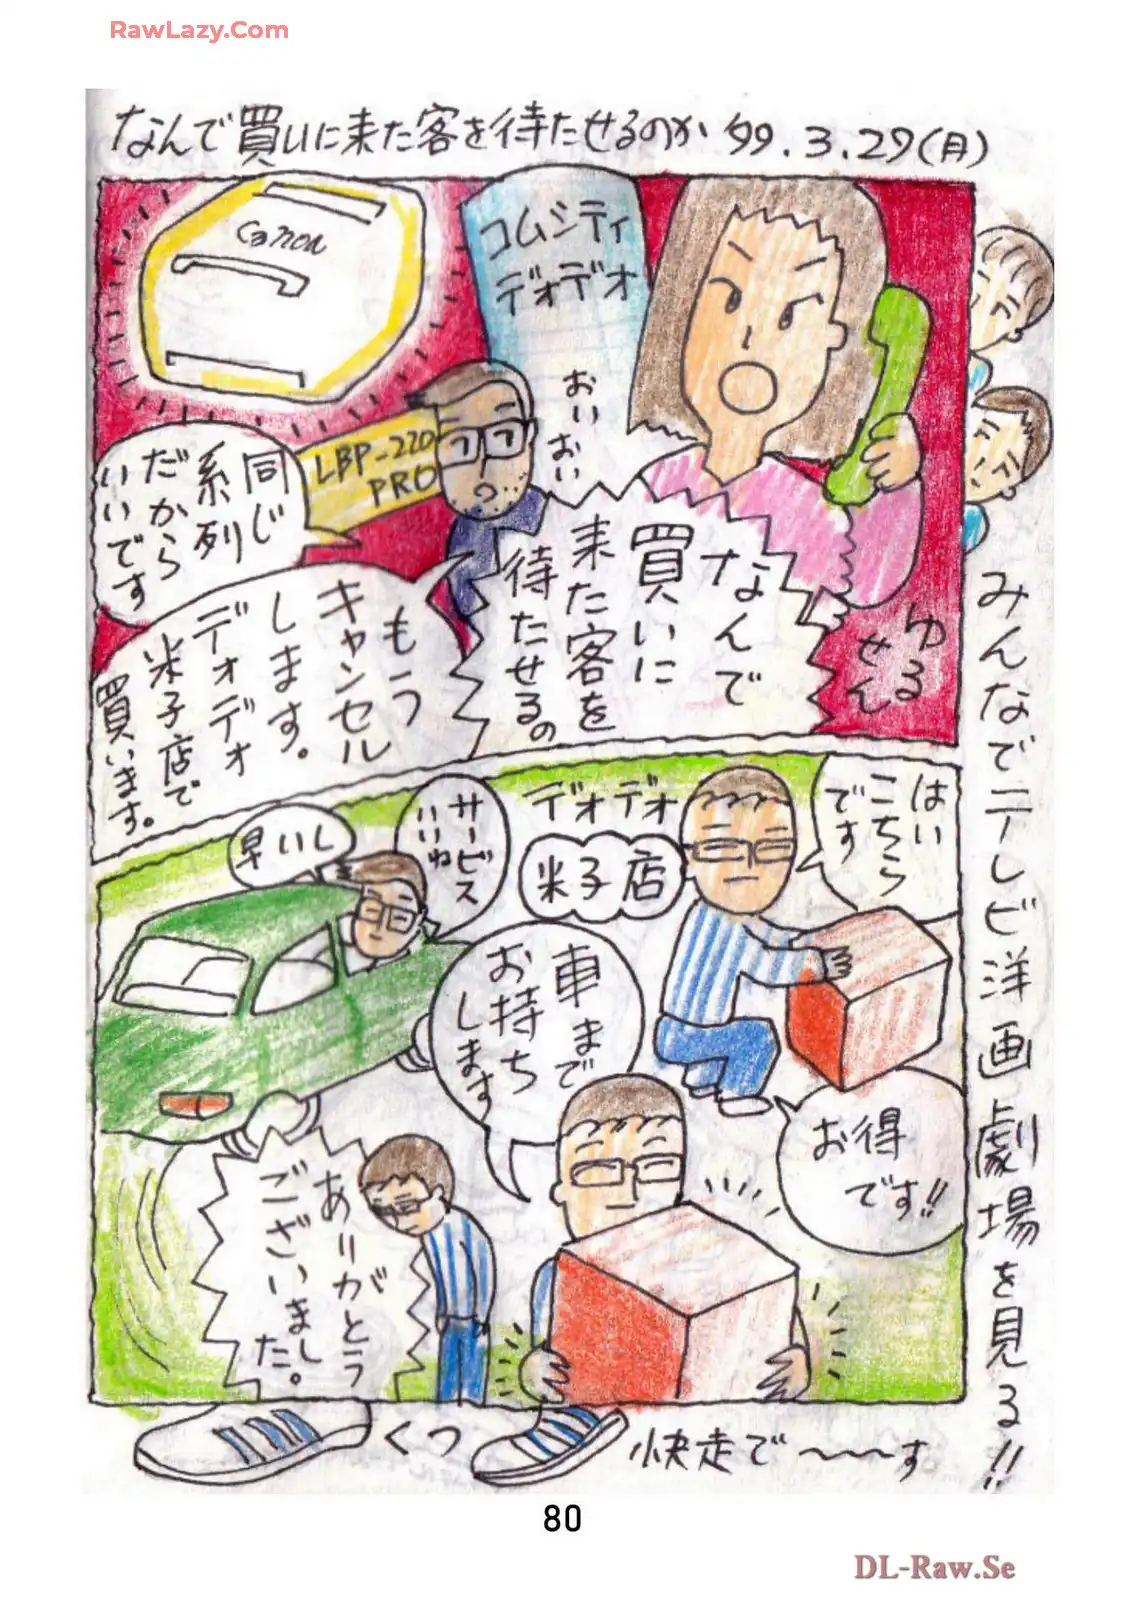 RawLazy.Com
なんで買いに来た客を待たせるのか '99.3.29(月)
コムシティ
デオデオ
Canon
LBP-220
PRO
おいおい
なんで
買いに
来た客を
待たせるの
ゆる
せん
同じ
系列
だから
いいです
もう
キャンセル
します。
デオデオ
米子店で
買います。
はい
こちら
です
デオデオ
米子店
サービス
いいね
早いし
お得
です!!
車まで
お持ち
します
ありがとう
ございまし
た。
みんなでテレビ洋画劇場を見る!!
くつ
快走で〜〜〜す
80
DL-Raw.Se